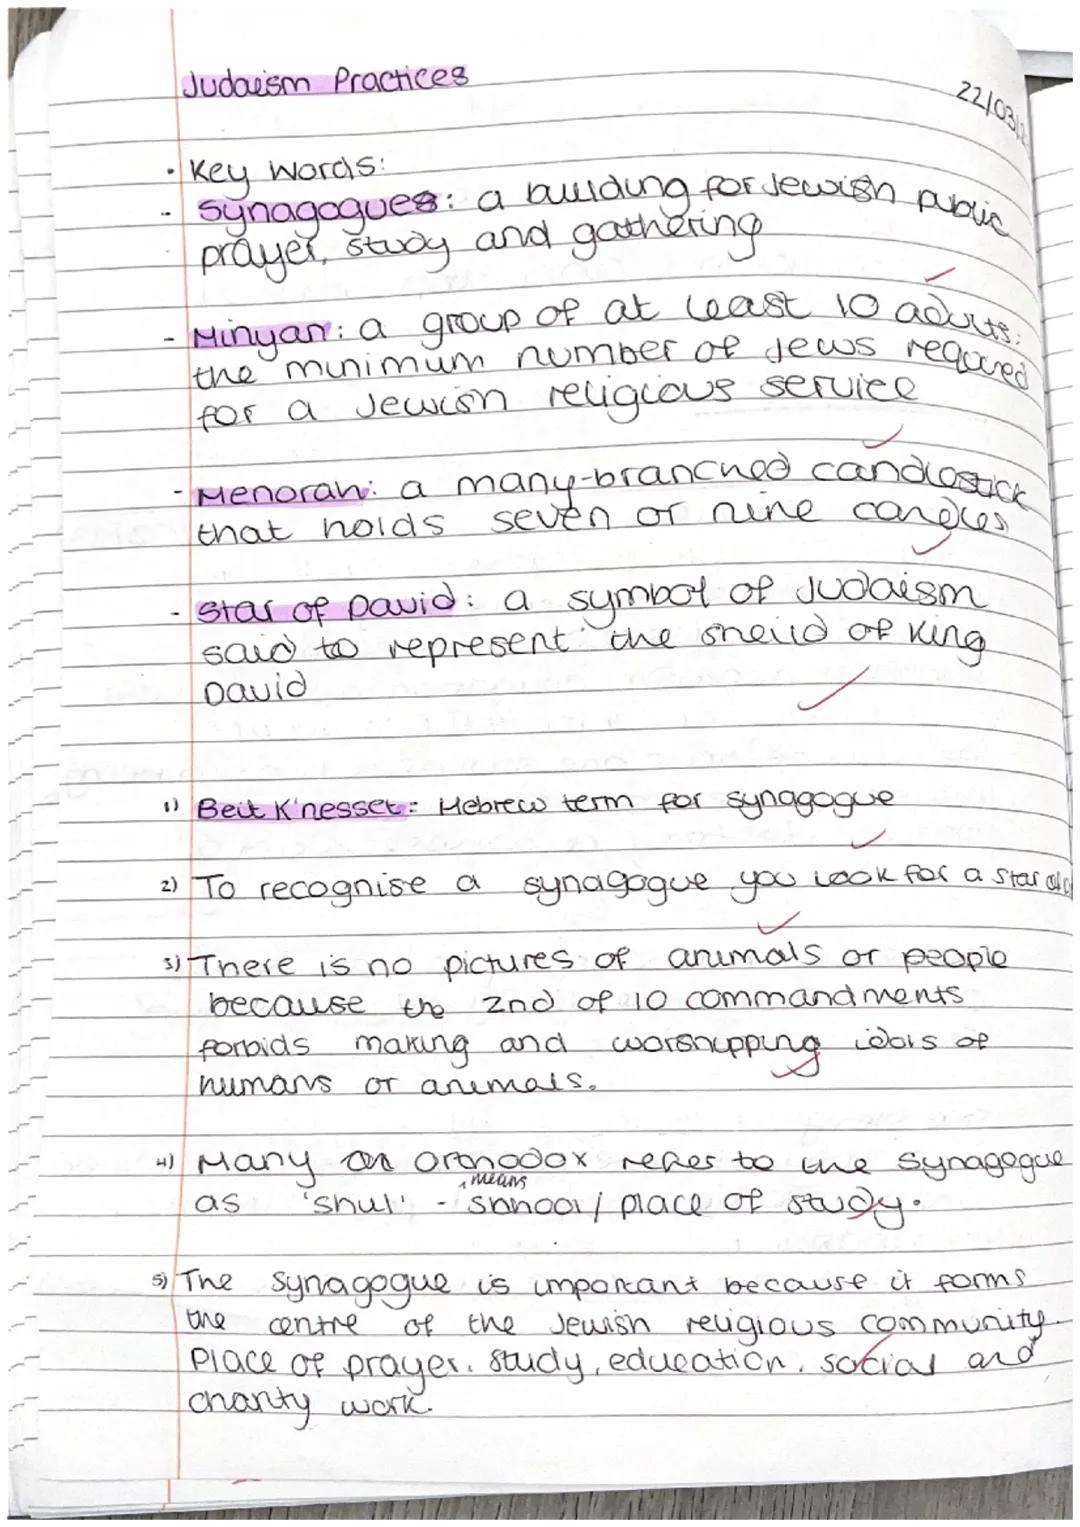 Judaism Practices
22/03/
• Key words:
- Synagogues: a building for Jewish public
prayer, study and gathering
- Minyan: a group of at least 10 adults;
the minimum number of Jews required
for a Jewish religious service
- Menorah: a many-branched candlestick
that holds seven or nine candles
- Star of David: a symbol of Judaism
said to represent the sheild of King
David
1) Beit K'nesset: Hebrew term for synagogue
2) To recognise a synagogue you look for a star
3) There is no pictures of animals or people
because the 2nd of 10 commandments
forbids making and worshipping idols of
humans or animals.
4) Many orthodox refer to the synagogue
means
as 'shul' - school / place of study.
5) The synagogue is important because it forms
the centre of the Jewish religious community.
Place of prayer, study, education, social and
charity work.